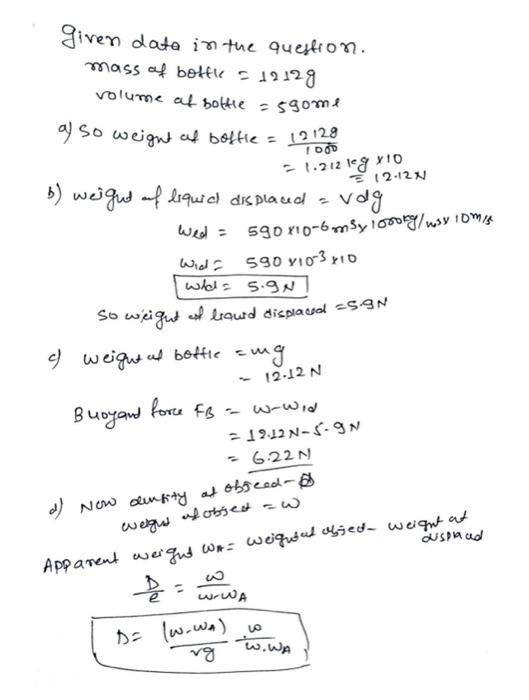 Given data in the question.
mass of bottle = 1212g
volume of bottle = 590ml
a) so weight of bottle = 1212g / 1000
= 1.212 kg x10
= 12.12N
b) weight of liquid displaced = vdg
Wld = 590 x10-6 m3 x 1000kg/m3 x 10m/s
Wld = 590 x10-3 x10
Wld = 5.9N
so weight of liquid displaced = 5.9N
c) weight of bottle = mg
= 12.12 N
Buoyant force FB = W-Wld
= 12.12N-5.9N
= 6.22N
d) Now density of object - D
weight of object = W
Apparent weight WA = weight of object - weight of displaced
D/e = W/W-WA
D = (W-WA)/vg W/W.WA